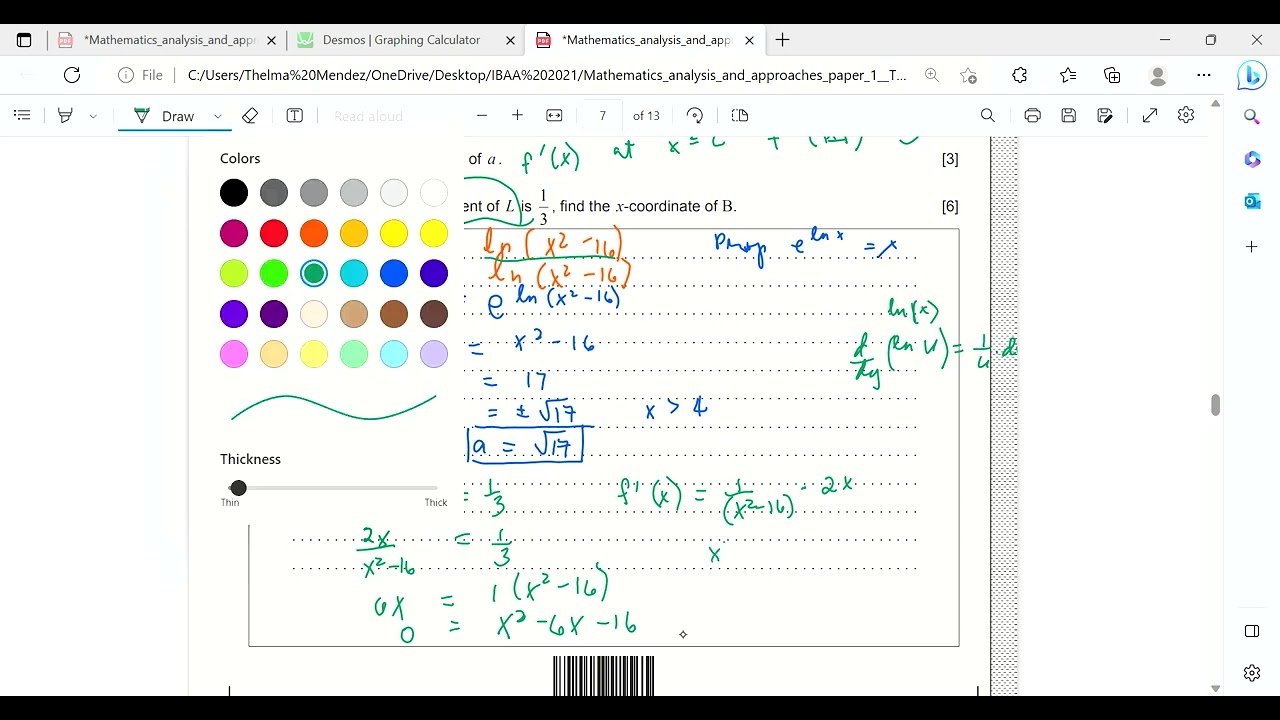 *Mathematics_analysis_and_appr
Desmos | Graphing Calculator
*Mathematics_analysis_and_app
File
C:/Users/Thelma%20Mendez/OneDrive/Desktop/IBAA%202021/Mathematics_analysis_and_approaches_paper_1__T...
Draw
Read aloud
7
of 13
Colors
Thickness
Thin
Thick
of a. f'(x) at x =
[3]
ent of L is 1/3, find the x-coordinate of B.
[6]
ln (x² -16)
Prop e^ln x = x
ln (x² -16)
e^ln (x² -16)
ln(x)
= x² -16
d/dy (ln u) = 1/u . d
= 17
= ± √17
x > 4
a = √17
= 1/3
f'(x) = 1/(x²-16) · 2x
2x/(x²-16) = 1/3
x
6x = 1 (x² -16)
0 = x² -6x -16